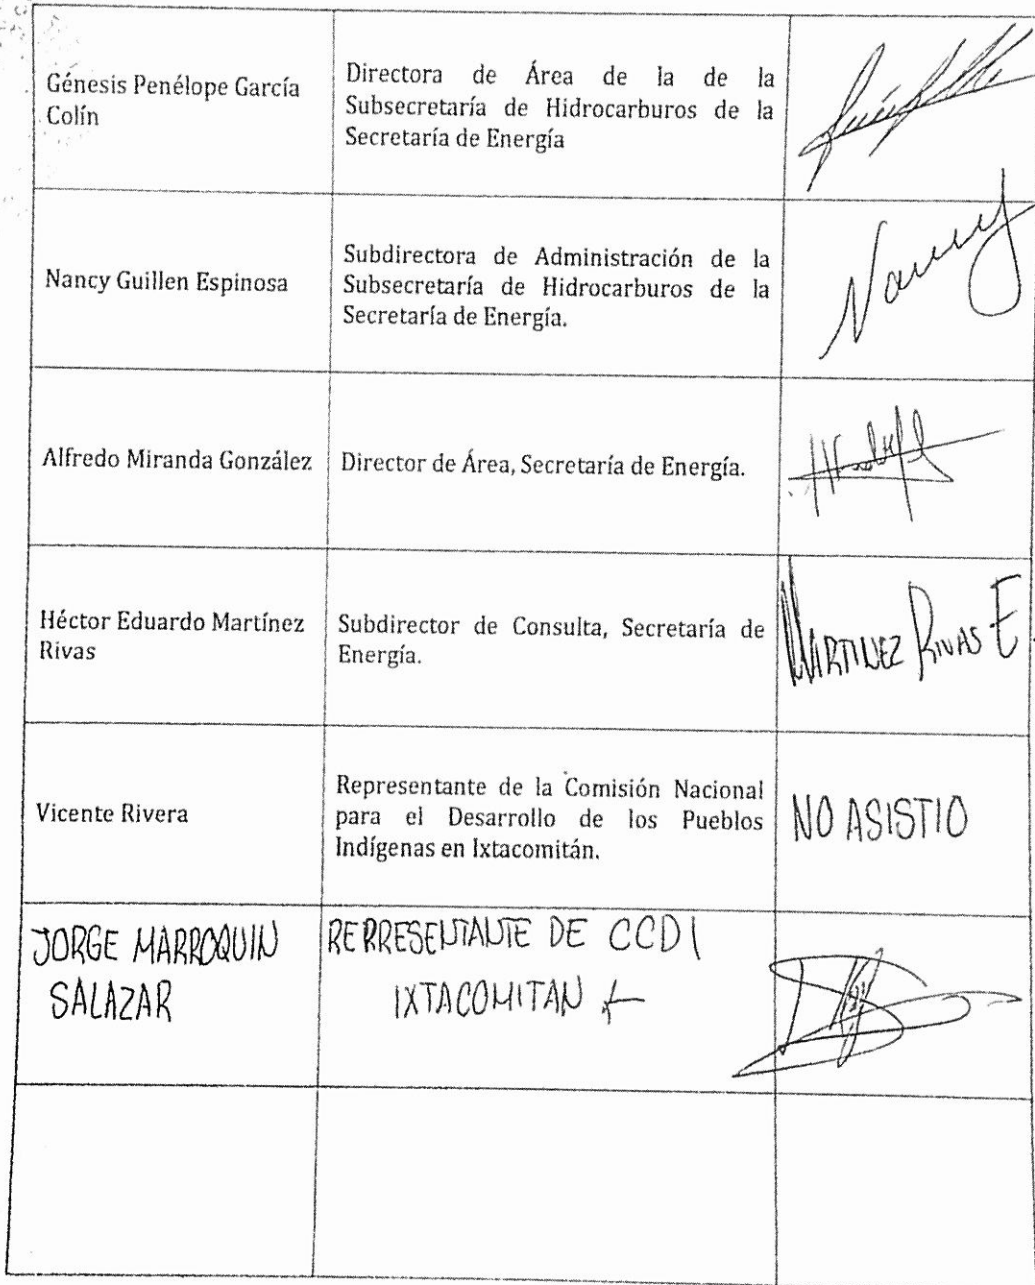 Génesis Penélope García
Colín
Directora de Área de la de la
Subsecretaría de Hidrocarburos de la
Secretaría de Energía
Nancy Guillen Espinosa
Subdirectora de Administración de la
Subsecretaría de Hidrocarburos de la
Secretaría de Energía.
Nancy
Alfredo Miranda González
Director de Área, Secretaría de Energía.
Héctor Eduardo Martínez
Rivas
Subdirector de Consulta, Secretaría de
Energía.
MARTINEZ RIVAS E.
Vicente Rivera
Representante de la Comisión Nacional
para el Desarrollo de los Pueblos
Indígenas en Ixtacomitán.
NO ASISTIO
JORGE MARROQUIN
SALAZAR
REPRESENTANTE DE CCDI
IXTACOMITAN